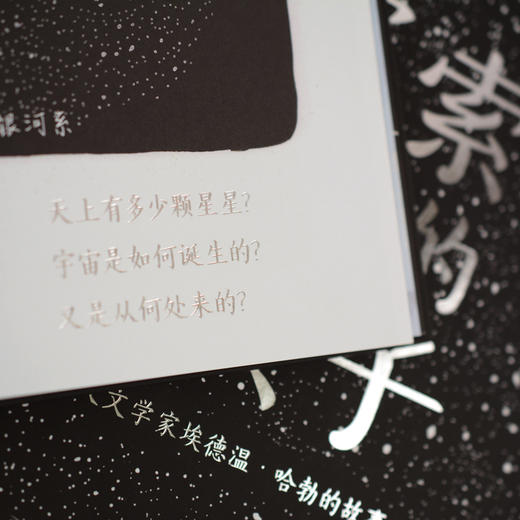 银河系
天上有多少颗星星?
宇宙是如何诞生的?
又是从何处来的?
索的
文学家埃德温·哈勃的故事